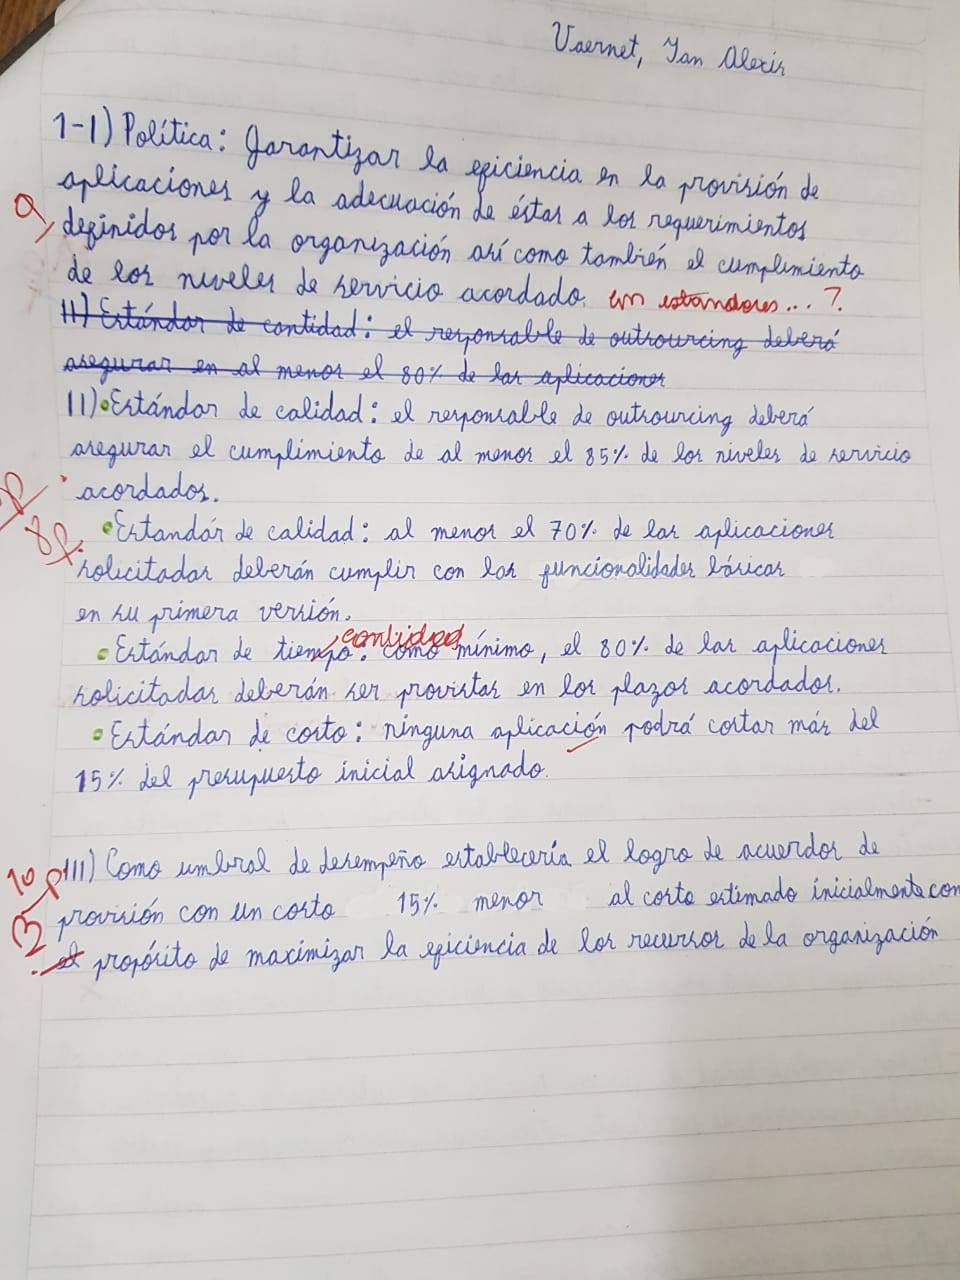 Vaernet, Ian Alexis
1-I) Política: Garantizar la eficiencia en la provisión de
aplicaciones y la adecuación de éstas a los requerimientos
definidos por la organización así como también el cumplimiento
de los niveles de servicio acordado. en estandares...?
II) Estándar de cantidad: el responsable de outsourcing deberá
asegurar en al menos el 80% de las aplicaciones
II) •Estándar de calidad: el responsable de outsourcing deberá
asegurar el cumplimiento de al menos el 85% de los niveles de servicio
acordados.
8p.
•Estandár de calidad: al menos el 70% de las aplicaciones
solicitadas deberán cumplir con las funcionalidades básicas
en su primera versión.
cantidad
•Estándar de tiempo: como mínimo, el 80% de las aplicaciones
solicitadas deberán ser provistas en los plazos acordados.
•Estándar de costo: ninguna aplicación podrá costar más del
15% del presupuesto inicial asignado.
10p III) Como umbral de desempeño establecería el logro de acuerdos de
provisión con un costo 15% menor al costo estimado inicialmente con
el propósito de maximizar la eficiencia de los recursos de la organización